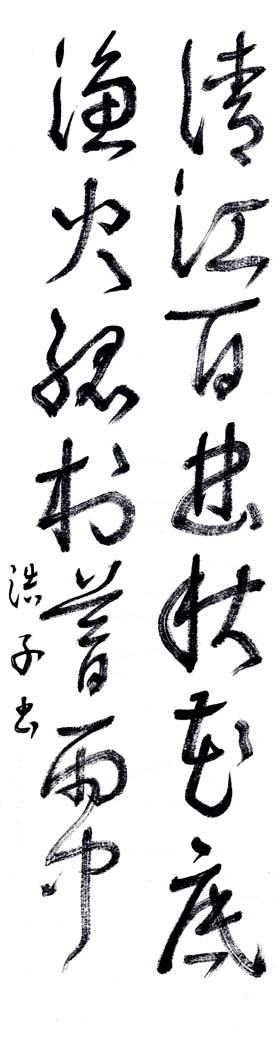 清江百秋花底
渔火孤村暮雨中
浩子书